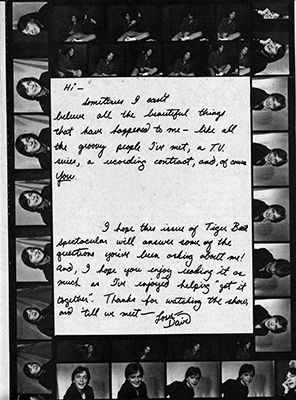 Hi —
sometimes I can't
believe all the beautiful things
that have happened to me — like all
the groovy people I've met, a T.V.
series, a recording contract, and, of course
you.
I hope this issue of Tiger Beat
spectacular will answer some of the
questions you've been asking about me!
and, I hope you enjoy reading it as
much as I've enjoyed helping "get it
together". Thanks for watching the show,
and 'till we meet —
Love,
Dave